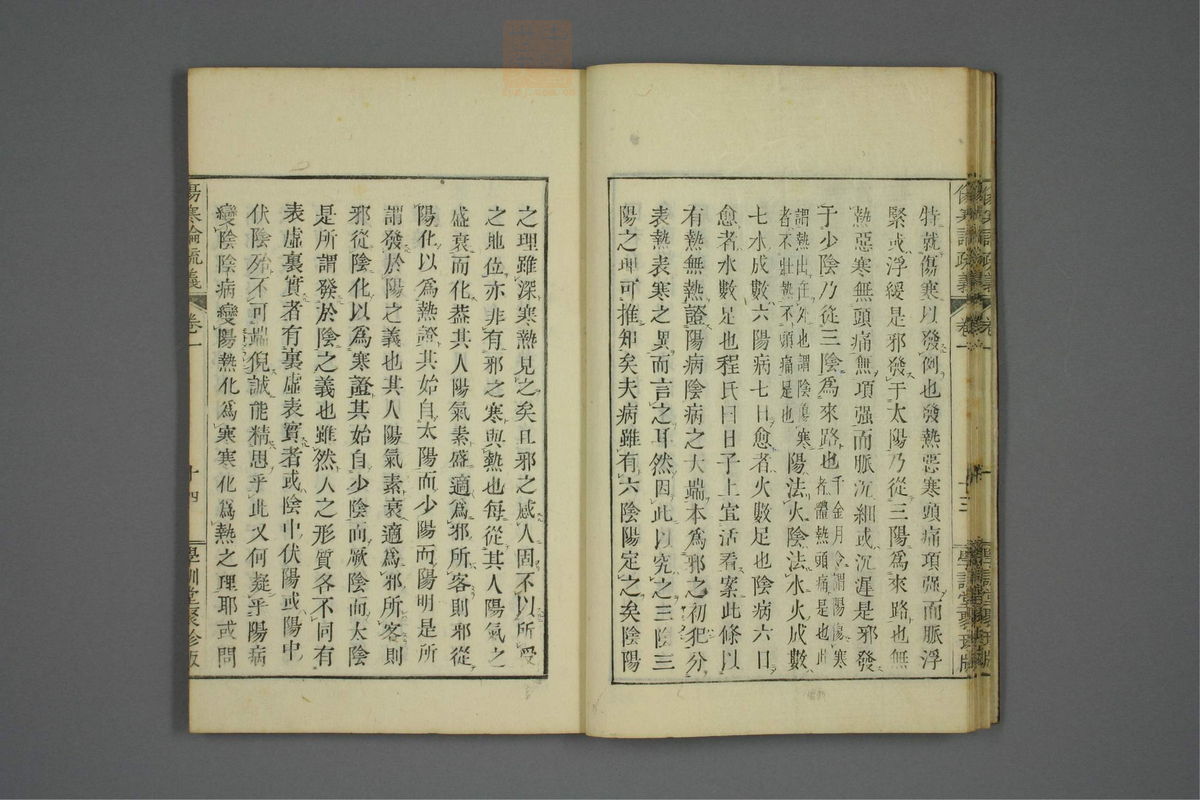 特就傷寒以發例也發熱惡寒頭痛項强而脈浮
緊或浮緩是邪發于太陽乃從三陽爲來路也無
熱惡寒無頭痛無項强而脈沉細或沉遲是邪發
于少陰乃從三陰爲來路也千金月令謂陽傷寒
者體熱頭痛是也此
謂熱出在外也謂陰傷寒
者不壯熱不頭痛是也陽法火陰法水火成數
七水成數六陽病七日愈者火數足也陰病六日
愈者水數足也程氏曰日子上宜活看案此條以
有熱無熱證陽病陰病之大端本爲邪之初犯分
表熱表寒之異而言之耳然因此以究之三陰三
陽之理可推知矣夫病雖有六陰陽定之矣陰陽
之理雖深寒熱見之矣且邪之感人固不以所受
之地位亦非有邪之寒與熱也每從其人陽氣之
盛衰而化葢其人陽氣素盛適爲邪所客則邪從
陽化以爲熱證其始自太陽而少陽而陽明是所
謂發於陽之義也其人陽氣素衰適爲邪所客則
邪從陰化以爲寒證其始自少陰而厥陰而太陰
是所謂發於陰之義也雖然人之形質各不同有
表虛裏實者有裏虛表實者或陰中伏陽或陽中
伏陰殆不可端倪誠能精思乎此又何疑乎陽病
變陰陰病變陽熱化爲寒寒化爲熱之理耶或問
傷寒論疏義
卷一
十四
學訓堂聚珍版